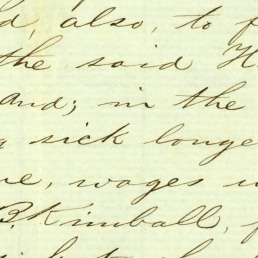 d, also, to f
the said H
and; in the
g sick longe
ne, wages w
B. Kimball, f